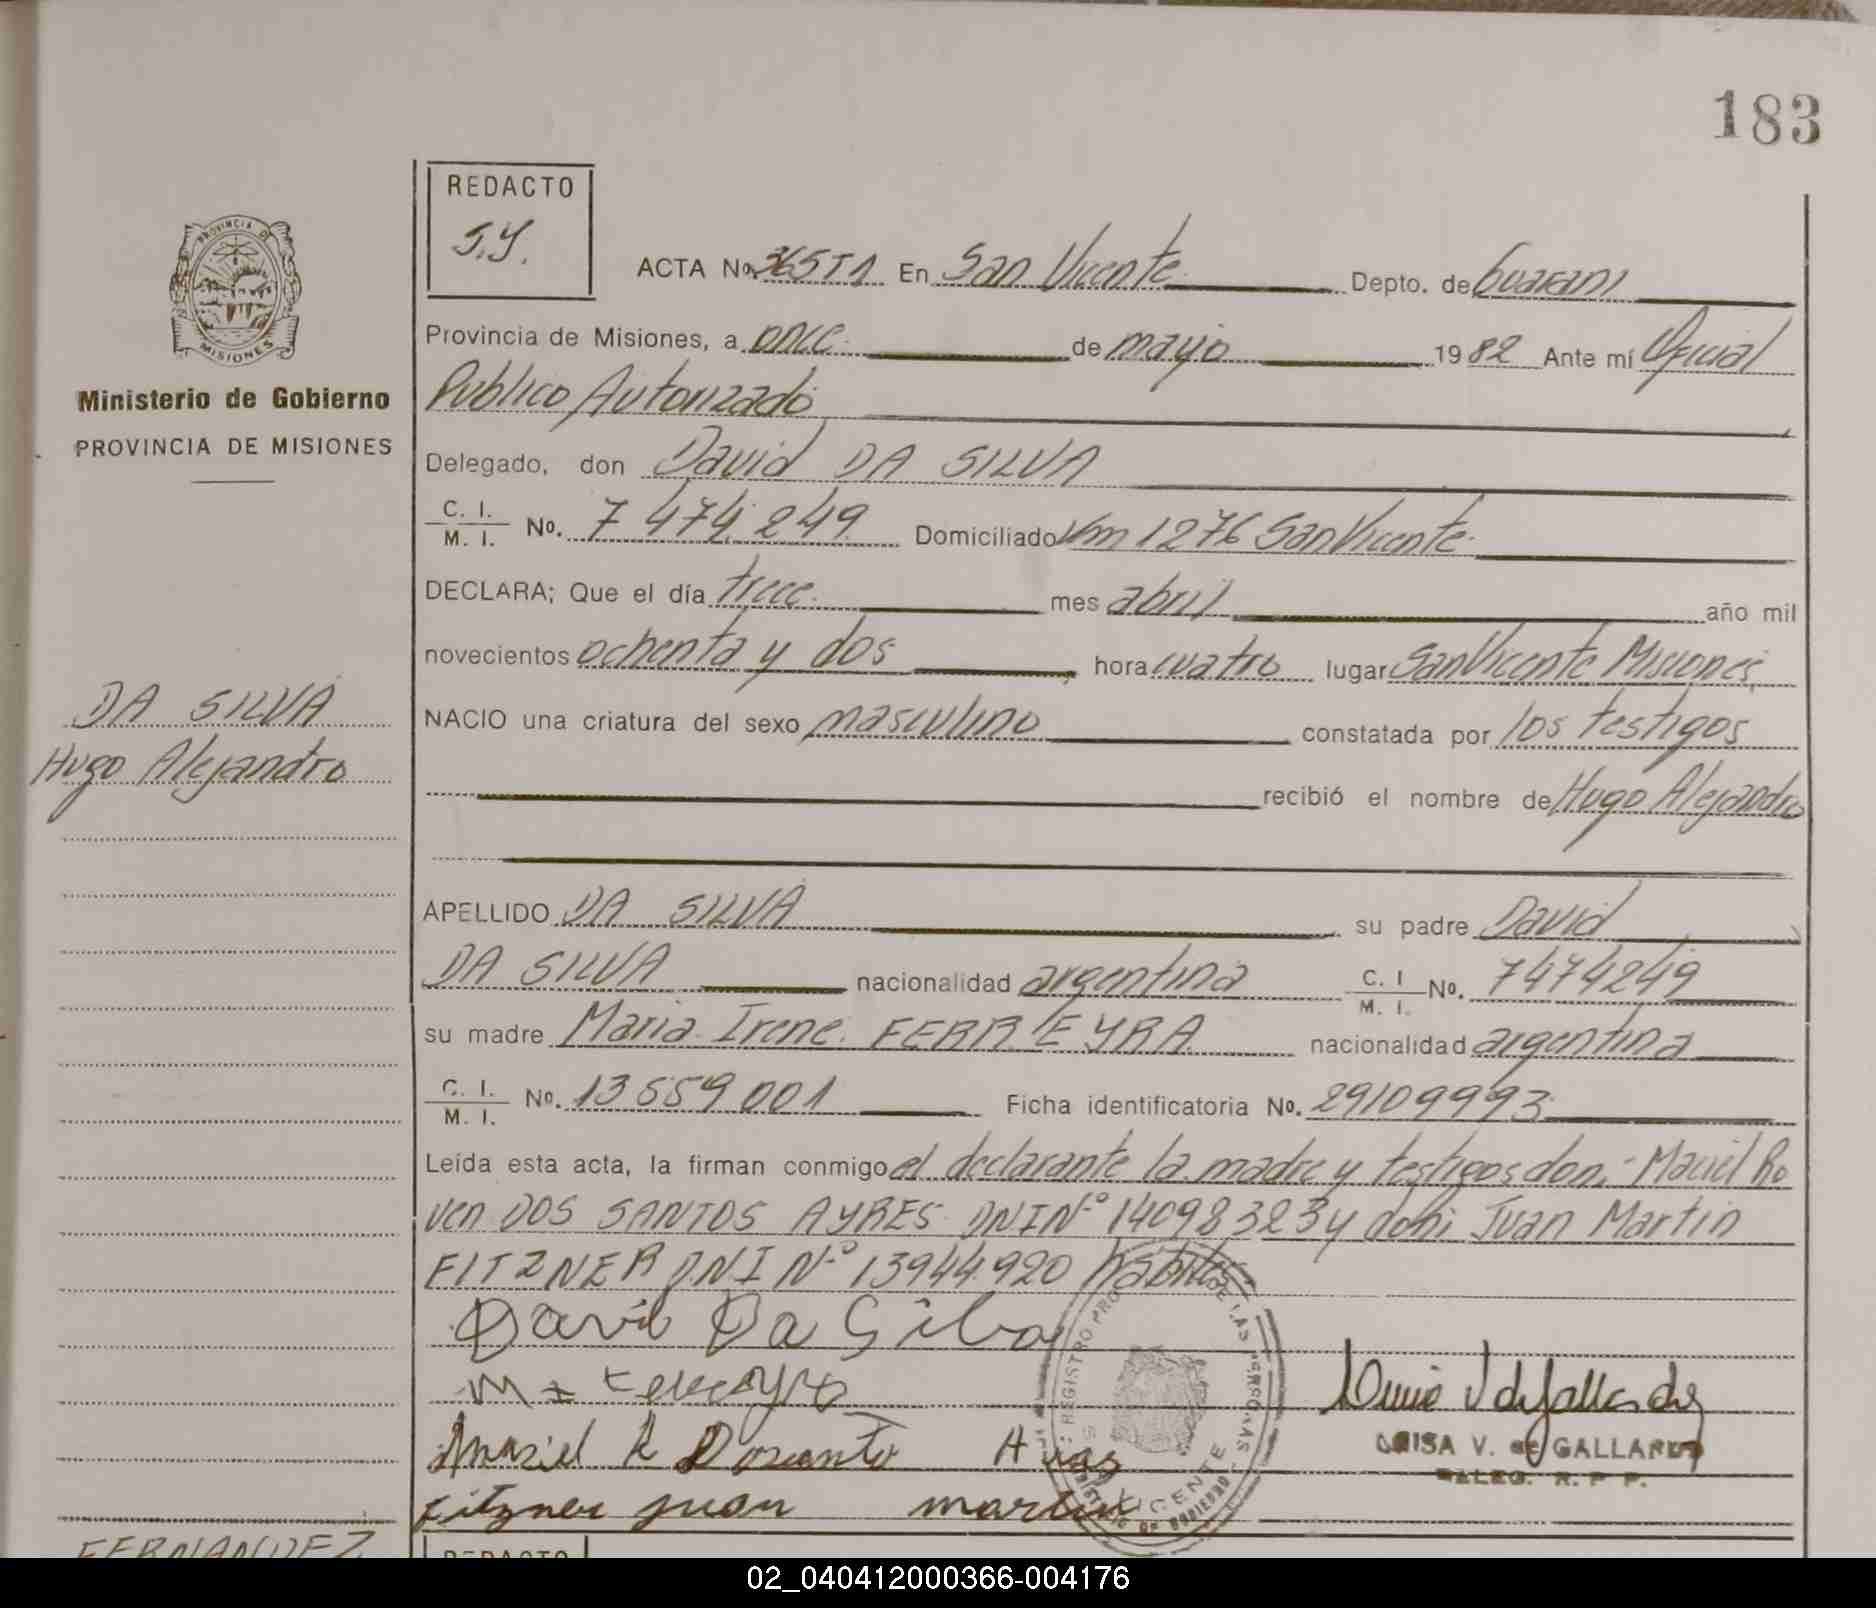 183
REDACTO
S.Y.
PROVINCIA DE
MISIONES
Ministerio de Gobierno
PROVINCIA DE MISIONES
ACTA No. En San Vicente Depto. de Guarani
Provincia de Misiones, a once de mayo 1982 Ante mí Oficial
Publico Autorizado
Delegado, don David DA SILVA
C. I. M. I. No. 7 474 249 Domiciliado Km 1276 San Vicente
DECLARA; Que el día trece mes abril año mil
novecientos ochenta y dos, hora cuatro lugar San Vicente Misiones
DA SILVA
Hugo Alejandro
NACIO una criatura del sexo masculino constatada por los testigos
recibió el nombre de Hugo Alejandro
APELLIDO DA SILVA su padre David
DA SILVA nacionalidad argentina C. I M. I. No. 7474249
su madre Maria Irene FERREYRA nacionalidad argentina
C. I. M. I. No. 13559001 Ficha identificatoria No. 29109993
Leída esta acta, la firman conmigo el declarante la madre y testigos don: Maciel Ro
ven DOS SANTOS AYRES DNI Nº 14098323 y don: Juan Martin
FITZNER DNI Nº 13944920 habiles
David Da Silva
REGISTRO DE LAS PERSONAS
VICENTE
V. de GALLARDO
R. P. P.
Fitzner Juan Martin
FERNANDEZ
REDACTO
02_040412000366-004176